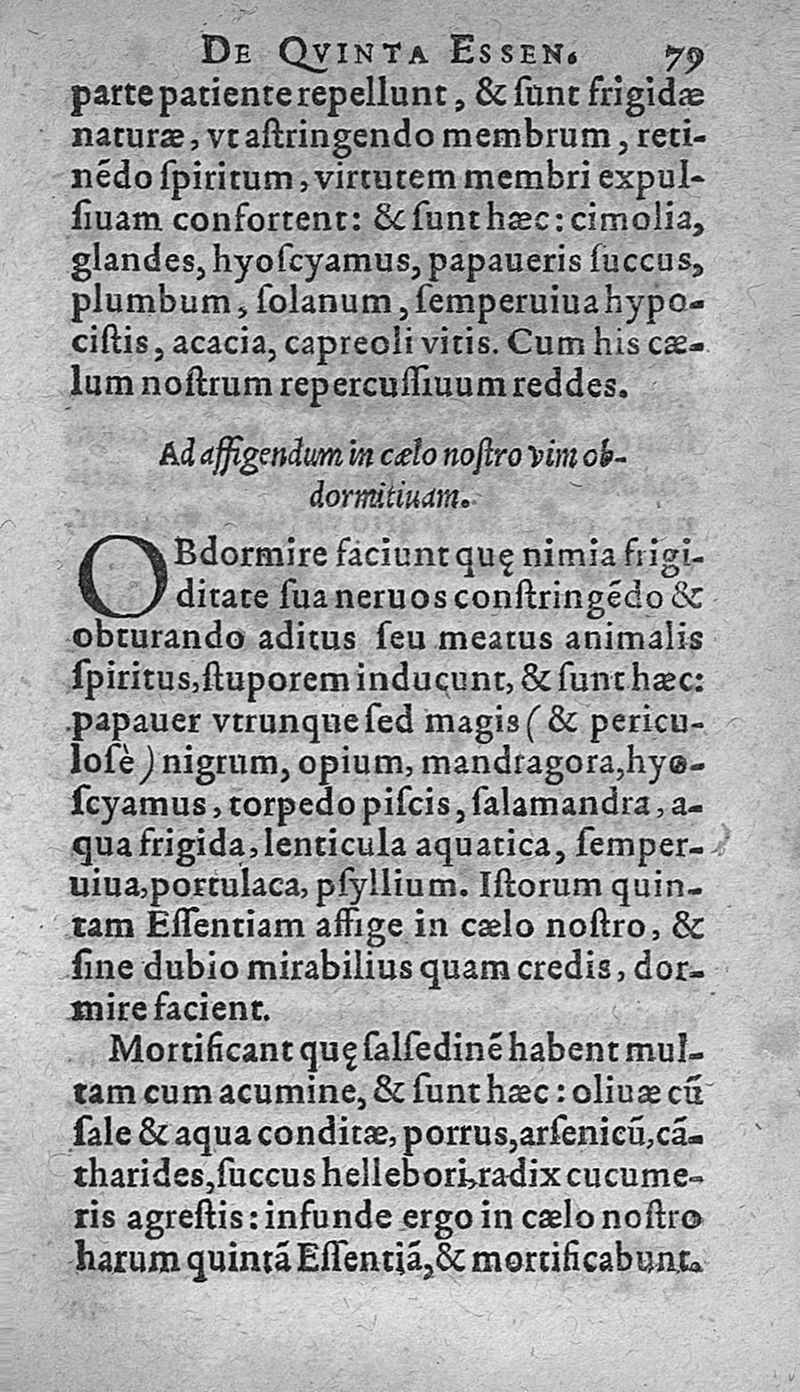 DE QVINTA ESSEN. 79
parte patiente repellunt, & ſunt frigidæ
naturæ, vt aſtringendo membrum, reti-
nẽdo ſpiritum, virtutem membri expul-
ſiuam confortent: & ſunt hæc: cimolia,
glandes, hyoſcyamus, papaueris ſuccus,
plumbum, ſolanum, ſemperuiua hypo-
ciſtis, acacia, capreoli vitis. Cum his cæ-
lum noſtrum repercuſſiuum reddes.
Ad affigendum in cælo noſtro vim ob-
dormitiuam.
OBdormire faciunt quę nimia frigi-
ditate ſua neruos conſtringẽdo &
obturando aditus ſeu meatus animalis
ſpiritus, ſtuporem inducunt, & ſunt hæc:
papauer vtrunque ſed magis (& pericu-
loſè) nigrum, opium, mandragora, hyo-
ſcyamus, torpedo piſcis, ſalamandra, a-
qua frigida, lenticula aquatica, ſemper-
uiua, portulaca, pſyllium. Iſtorum quin-
tam Eſſentiam affige in cælo noſtro, &
ſine dubio mirabilius quam credis, dor-
mire facient.
Mortificant quę ſalſedinẽ habent mul-
tam cum acumine, & ſunt hæc: oliuæ cũ
ſale & aqua conditæ, porrus, arſenicũ, cã-
tharides, ſuccus hellebori, radix cucume-
ris agreſtis: infunde ergo in cælo noſtro
harum quintã Eſſentiã, & mortificabunt.